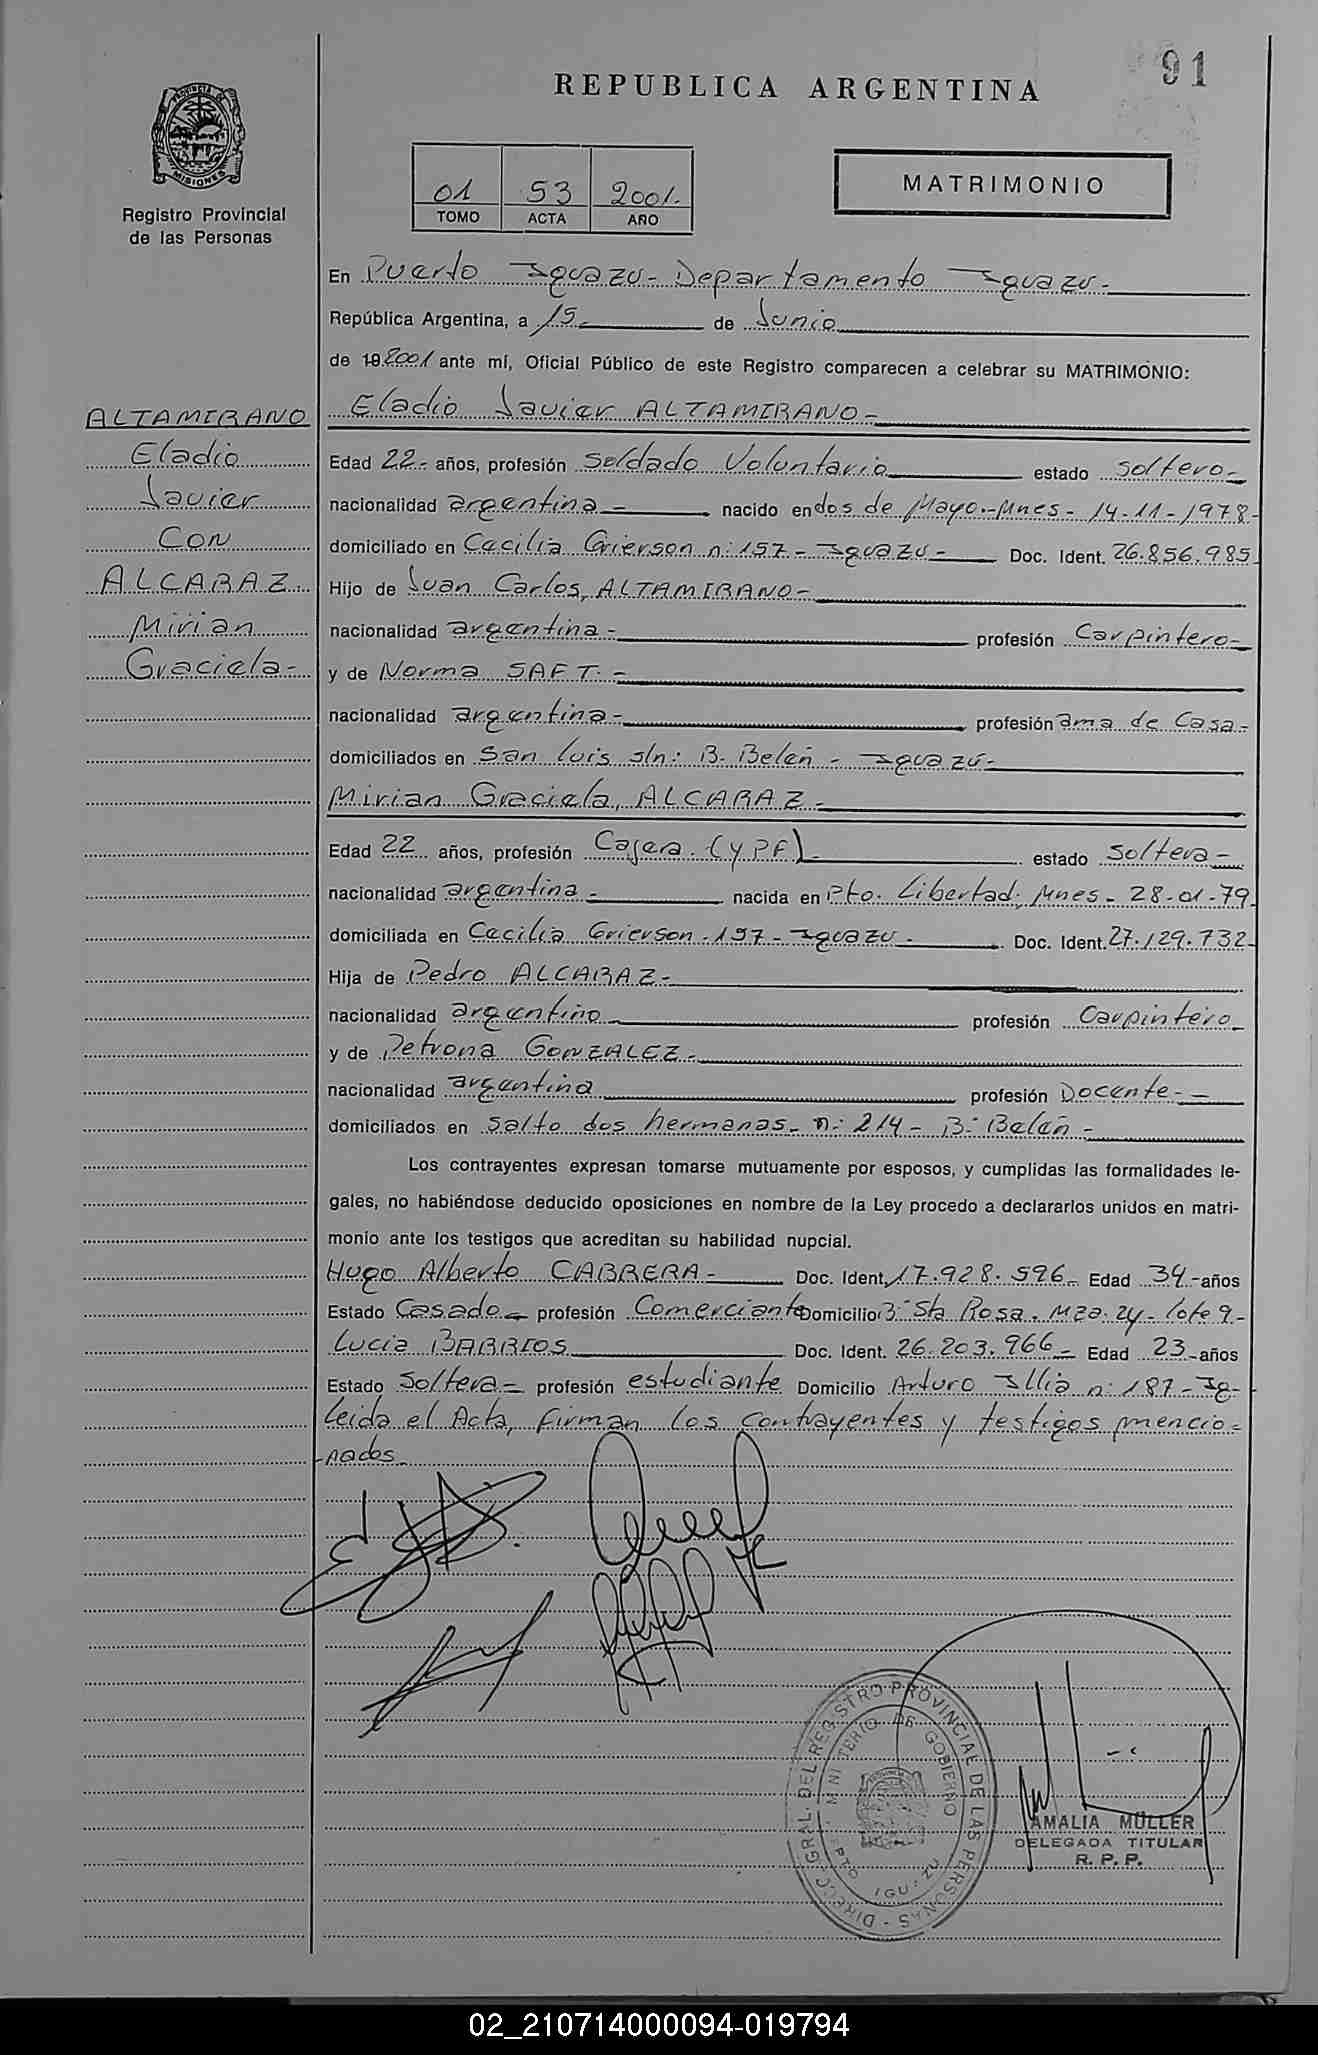 91
REPUBLICA ARGENTINA
PROVINCIA DE
MISIONES
Registro Provincial
de las Personas
01 53 2001.
TOMO ACTA AÑO
MATRIMONIO
En Puerto Iguazú - Departamento Iguazú -
República Argentina, a 15 de Junio
de 19 2001 ante mí, Oficial Público de este Registro comparecen a celebrar su MATRIMONIO:
ALTAMIRANO
Eladio
Javier
Con
ALCARAZ
Mirian
Graciela -
Eladio Javier ALTAMIRANO -
Edad 22 - años, profesión Soldado Voluntario estado Soltero -
nacionalidad argentina - nacido en dos de Mayo - Mnes - 14-11-1978 -
domiciliado en Cecilia Grierson n: 157 - Iguazú - Doc. Ident. 26.856.985
Hijo de Juan Carlos, ALTAMIRANO -
nacionalidad argentina - profesión Carpintero -
y de Norma SAFT. -
nacionalidad argentina - profesión ama de Casa -
domiciliados en San Luis s/n: B. Belén - Iguazú -
Mirian Graciela, ALCARAZ -
Edad 22 años, profesión Cajera. (YPF) - estado Soltera -
nacionalidad argentina - nacida en Pto. Libertad; Mnes - 28-01-79.
domiciliada en Cecilia Grierson - 157 - Iguazú - Doc. Ident. 27.129.732 -
Hija de Pedro ALCARAZ -
nacionalidad argentino profesión Carpintero
y de Petrona GONZALEZ -
nacionalidad argentina profesión Docente -
domiciliados en Salto dos hermanas - n: 214 - B: Belén -
Los contrayentes expresan tomarse mutuamente por esposos, y cumplidas las formalidades le-
gales, no habiéndose deducido oposiciones en nombre de la Ley procedo a declararlos unidos en matri-
monio ante los testigos que acreditan su habilidad nupcial.
Hugo Alberto CABRERA - Doc. Ident. 17.928.596 - Edad 34 - años
Estado Casado - profesión Comerciante Domicilio B: Sta Rosa. Mza. 24 - lote 9 -
Lucia BARRIOS Doc. Ident. 26.203.966 - Edad 23 - años
Estado Soltera - profesión estudiante Domicilio Arturo Illia n: 187 - Ig -
Leida el Acta, firman los contrayentes y testigos mencio-
nados -
DIRECC. GRAL. DEL REGISTRO PROVINCIAL DE LAS PERSONAS
MINISTERIO DE GOBIERNO
PTO IGUAZU
AMALIA MÜLLER
DELEGADA TITULAR
R. P. P.
02_210714000094-019794